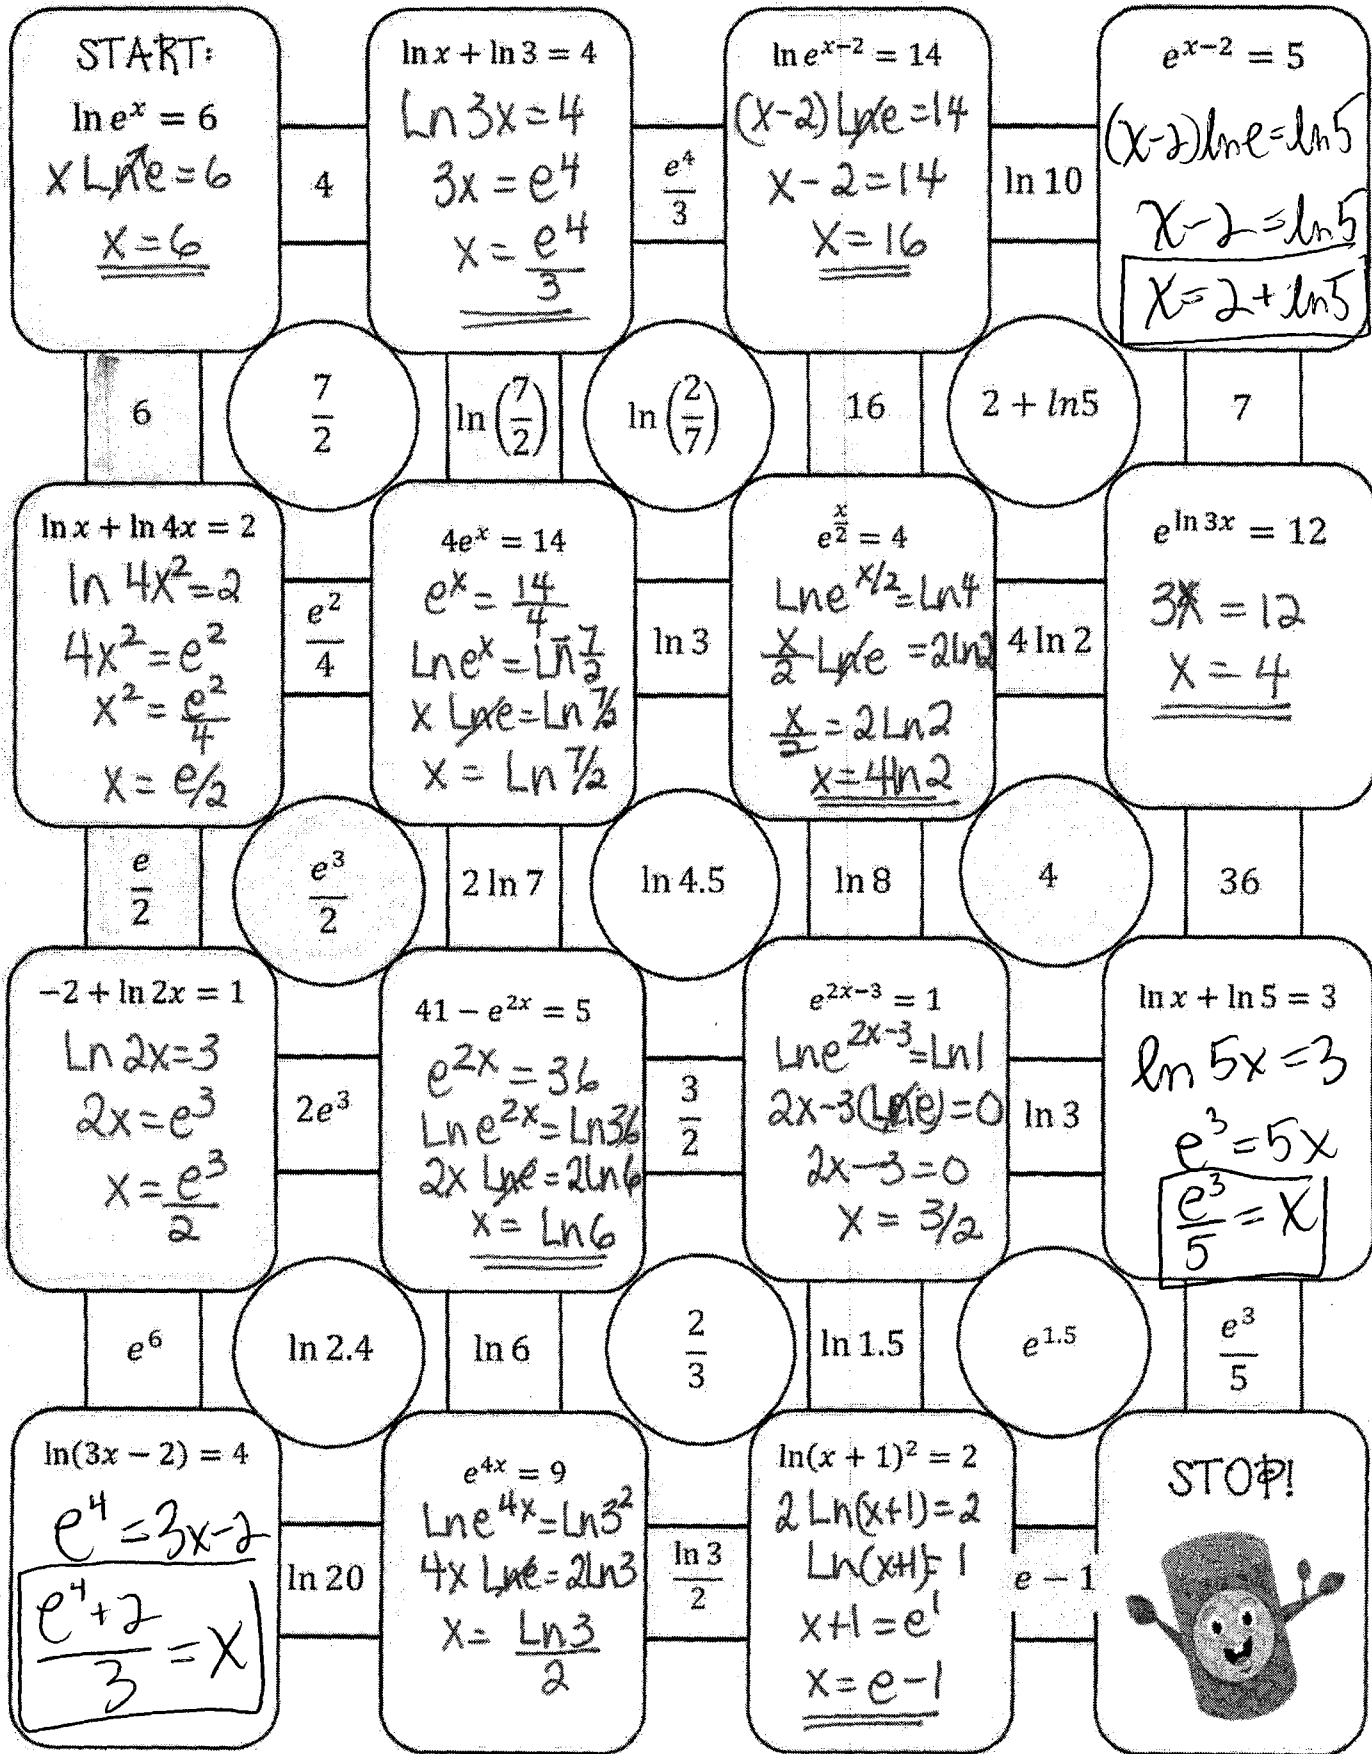 START:
ln e^x = 6
x Ln e = 6
x = 6
4
ln x + ln 3 = 4
Ln 3x = 4
3x = e^4
x = e^4/3
e^4/3
ln e^{x-2} = 14
(x-2) Ln e = 14
x - 2 = 14
x = 16
ln 10
e^{x-2} = 5
(x-2) ln e = ln 5
x - 2 = ln 5
x = 2 + ln 5
6
7/2
ln (7/2)
ln (2/7)
16
2 + ln5
7
ln x + ln 4x = 2
ln 4x^2 = 2
4x^2 = e^2
x^2 = e^2/4
x = e/2
e^2/4
4e^x = 14
e^x = 14/4
Ln e^x = Ln 7/2
x Ln e = Ln 7/2
x = Ln 7/2
ln 3
e^{x/2} = 4
Ln e^{x/2} = Ln 4
x/2 Ln e = 2 ln 2
x/2 = 2 Ln 2
x = 4 ln 2
4 ln 2
e^{ln 3x} = 12
3x = 12
x = 4
e/2
e^3/2
2 ln 7
ln 4.5
ln 8
4
36
-2 + ln 2x = 1
Ln 2x = 3
2x = e^3
x = e^3/2
2e^3
41 - e^{2x} = 5
e^{2x} = 36
Ln e^{2x} = Ln 36
2x Ln e = 2 ln 6
x = Ln 6
3/2
e^{2x-3} = 1
Ln e^{2x-3} = Ln 1
2x-3 (Ln e) = 0
2x - 3 = 0
x = 3/2
ln 3
ln x + ln 5 = 3
ln 5x = 3
e^3 = 5x
e^3/5 = x
e^6
ln 2.4
ln 6
2/3
ln 1.5
e^{1.5}
e^3/5
ln(3x - 2) = 4
e^4 = 3x - 2
e^4 + 2/3 = x
ln 20
e^{4x} = 9
Ln e^{4x} = Ln 3^2
4x Ln e = 2 Ln 3
x = Ln 3/2
ln 3/2
ln(x + 1)^2 = 2
2 Ln(x+1) = 2
Ln(x+1) = 1
x+1 = e^1
x = e - 1
e - 1
STOP!